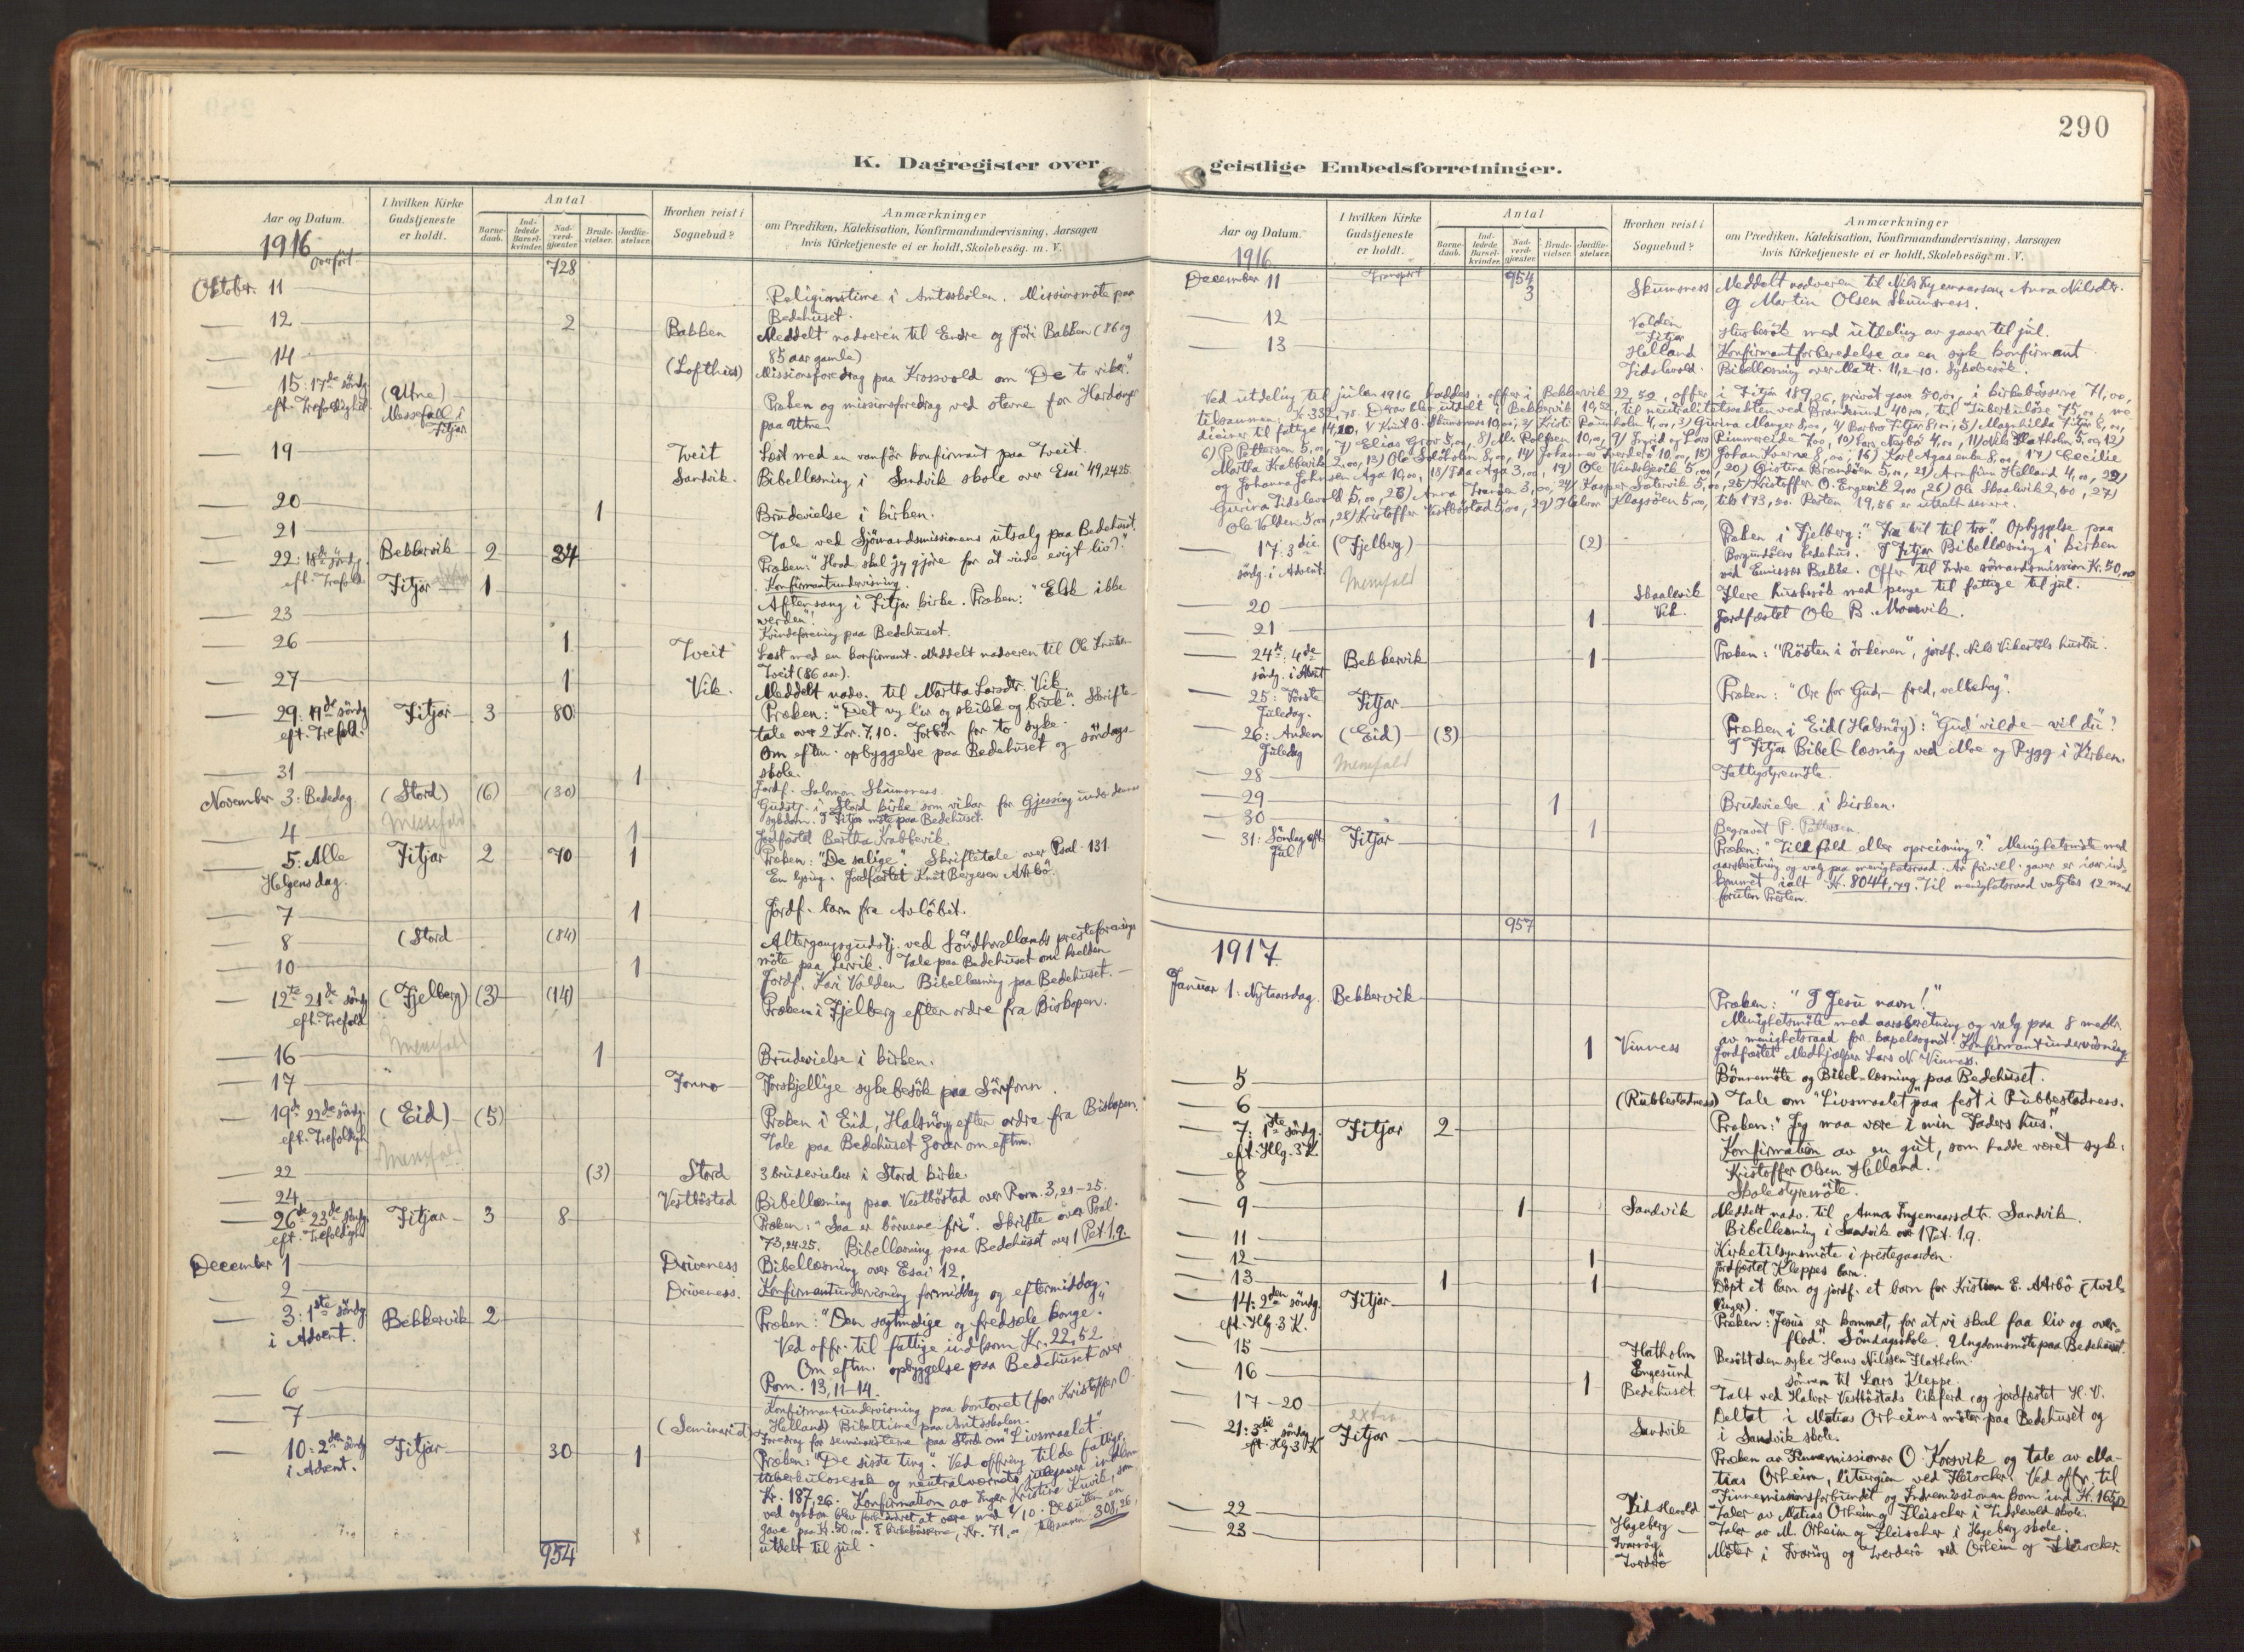 K. Dagregister over
Aar og Datum.
I hvilken Kirke Gudstjeneste er holdt.
Antal
Barne-daab.
Ind-ledede Barsel-kvinder.
Nad-verd-gjæster.
Brude-vielser.
Jordfæ-stelser.
Hvorhen reist i Sognebud?
Anmærkninger
om Prædiken, Katekisation, Konfirmandundervisning, Aarsagen
hvis Kirketjeneste ei er holdt, Skolebesög. m. V.
1916
overfört 728
Oktober. 11 Religionstime i Amtsskolen. Missionsmöte paa
Bedehuset.
12 2 Bakken Meddelt nadveren til Endre og Jöri Bakken (86 og
85 aar gamle)
14 (Lofthus) Missionsforedrag paa Krossvold om "De to riker".
15: 17de söndg. (Utne) Præken og missionsforedrag ved stevne for Hardanger
eft. Trefoldighet. Messefall i Fitjar paa Utne.
19 Tveit Læst med en vanför konfirmant paa Tveit.
Sandvik. Bibellæsning i Sandvik skole over Esai 49,24.25.
20 1 Brudevielse i kirken.
21 Tale ved Sjömandsmissionens utsalg paa Bedehuset.
22: 18de söndg. Bekkervik 2 34 Præken: "Hvad skal jeg gjöre for at vinde evigt liv?"
eft. Trefold. Konfirmantundervisning.
Fitjar 1 Aftensang i Fitjar kirke. Præken: "Elsk ikke
verden".
23 Kvindeforening paa Bedehuset.
26 1 Tveit Læst med en konfirmant. Meddelt nadveren til Ole Knutsen
Tveit (86 aar).
27 1 Vik. Meddelt nadv. til Martha Larsdtr. Vik
29: 19de söndg. Fitjar 3 80 Præken: "Det ny liv og skikk og bruk". Skrifte-
eft. Trefold. tale over 2 Kor. 7,10. Forbön for to syke.
Om eftm. opbyggelse paa Bedehuset og söndags-
skole.
31 1 Jordf. Salomon Skumsness.
November 3: Bededag (Stord) (6) (30) Gudstj. i Stord kirke som vikar for Gjessing under dennes
Messefald sygdom. I Fitjar möte paa Bedehuset.
4 1 Jordfæstet Bertha Krabbevik
5: Alle Fitjar 2 70 1 Præken: "De salige". Skriftetale over Psal. 131
Helgens dag. En lysing. Jordfæstet Knut Bergesen Aarbö.
7 1 Jordf. barn fra Avlöbet.
8 (Stord (84) Altergangsgudstj. ved Söndhordlands presteforenings
möte paa Lervik. Tale paa Bedehuset om kvelden
10 1 Jordf. Kari Volden Bibellæsning paa Bedehuset.
12te 21de söndg. (Fjelberg) (3) (14) Præken i Fjelberg efter ordre fra Biskopen.
eft. Trefold.
Messefald
16 1 Brudevielse i kirken.
17 Fonno Forskjellige sykebesök paa Sörfonn.
19de 22de söndg. (Eid) (5) Præken i Eid, Halsnöy efter ordre fra Biskopen.
eft. Trefoldigh. Messefald Tale paa Bedehuset om eftm.
22 (3) Stord 3 brudevielser i Stord kirke.
24 Vestböstad Bibellæsning paa Vestböstad over Rom. 3,21-25.
26de 23de söndg. Fitjar 3 8 Præken: "Saa er börnene fri". Skrifte over Psal.
eft. Trefoldigh. 73,24.25. Bibellæsning paa Bedehuset over 1 Pet 1,9.
December 1 Driveness Bibellæsning over Esai 12.
2 Driveness. Konfirmantundervisning formiddag og eftermiddag.
3: 1ste söndg. Bekkervik 2 Præken: "Den sagtmodige og fredsæle konge".
i Advent. Ved offr. til fattige indkom Kr. 22,52
Om eftm. opbyggelse paa Bedehuset over
Rom. 13,11-14.
6 Konfirmantundervisning paa kontoret (for Kristoffer O.
7 Helland) Bibeltime paa Amtsskolen.
(Seminariet) Foredrag for seminaristerne paa Stord om "Livsmaalet"
10: 2den söndg. Fitjar 30 1 Præken: "De sidste ting". Ved offring til de fattige,
i Advent. tuberkulosesak og neutralvernets julegaver indkom
Kr. 187,26. Konfirmation av Inger Kristine Kuvik, som
ved sygdom blev forhindret at være med 1/10. Desuten en
gave paa Kr. 50,00. I kirkebösserne, Kr. 71,00 tilsammen: 308,26,
utdelt til jul.
954
290
geistlige Embedsforretninger.
Aar og Datum.
I hvilken Kirke Gudstjeneste er holdt.
Antal
Barne-daab.
Ind-ledede Barsel-kvinder.
Nad-verd-gjæster.
Brude-vielser.
Jordfæ-stelser.
Hvorhen reist i Sognebud?
Anmærkninger
om Prædiken, Katekisation, Konfirmandundervisning, Aarsagen
hvis Kirketjeneste ei er holdt, Skolebesög. m. V.
1916
Transport 954
December 11 3 Skumsness Meddelt nadveren til Nils Ingemaarsen, Anna Nilsdtr.
og Martin Olsen Skumsness.
12 Volden Fitjar Husbesök med utdeling av gaver til jul.
13 Helland Konfirmantforberedelse av en syk konfirmant
Tidslevold. Bibellæsning over Matt. 11,2-10. Sykebesök.
Ved utdeling til julen 1916 haddes: offer i Bekkervik 22,52, offer i Fitjar 189,26, privat gave 50,00, i kirkebösserne 71,00,
tilsammen Kr. 332,78. Derav blev utdelt i Bekkervik 19,52, til neutralitetsvakten ved Brandesund 40,00, til Tuberkulöse 75,00, me
diciner til fattige 14,20, 1/ Knut O. Skumsness 10,00, 2/ Kristi Raunholm 4,00, 3) Gurina Manger 8,00, 4/ Barbro Fitjar 8,00, 5/ Magnhilda Fitjar 8,00,
6) P. Pettersen 5,00, 7) Elias Grov 5,00, 8) Mr. Rolfsen 10,00, 9/ Ingrid og Lars Rimmereide 7,00, 10) Lars Nesbö 4,00, 11) Nils Flatholm 5,00, 12)
Martha Krabbevik 2,00, 13) Ole Selöholm 8,00, 14) Johannes Tverderö 10,00, 15) Johan Kverne 8,00, 16) Karl Agasenke 8,00, 17) Cecilie
og Johanna Johnsen Aga 10,00, 18/ Ida Aga 3,00, 19) Ole Vindslysvik 5,00, 20) Gistina Brændöen 5,00, 21) Arnfinn Helland 4,00, 22)
Gurina Tidslevold 5,00, 23) Anna Tranöen 3,00, 24/ Kasper Sætervik 5,00, 25) Kristoffer O. Engevik 2,00, 26) Ole Skaalevik 2,00, 27)
Ole Volden 5,00, 28/ Kristoffer Vestböstad 5,00, 29/ Halvor Klagsöen 5,00, tils. 173,00. Resten 19,56 er utdelt senere.
17: 3die (Fjelberg) (2) Præken i Fjelberg: "Fra tvil til tro" Opbyggelse paa
söndg. i Advent. Messefald Borgundöens bedehus. I Fitjar Bibellæsning i kirken
ved Emissær Bakke. Offer til Indre sömandsmission Kr. 50,00
20 Skaalevik Flere husbesök med penge til fattige til jul.
21 1 Vik. Jordfæstet Ole B. Mosevik.
24de: 4de Bekkervik 1 Præken: "Rösten i örkenen", jordf. Nils Vikestöls hustru.
söndg. i Advent
25: Förste Fitjar Præken: "Ære for Gud - fred, velbehag".
Juledag.
26: Anden (Eid) (3) Præken i Eid (Halsnöy): "Gud vilde - vil du"?
Juledag Messefald I Fitjar Bibel-læsning ved Moe og Rygg i Kirken.
28 Fattigstyremöte.
29 1 Brudevielse i kirken.
30 1 Begravet P. Pettersen.
31: Söndag eft. Fitjar Præken: "Til fald eller opreisning?" Menighetsmöte med
Jul aarsberetning og valg paa menighetsraad. Av frivill. gaver er i aar ind-
kommet ialt Kr. 8044,79. Til menighetsraad valgtes 12 mend
foruten Presten.
957
1917.
Januar 1: Nytaarsdag. Bekkervik Præken: "I Jesu navn!"
Menighetsmöte med aarsberetning og valg paa 8 medlr.
av menighetsraad for kapelsognet. Konfirmantundervisning
1 Vinness Jordfæstet Medhjælper Lars N. Vinness.
5 Bönnemöte og Bibel-læsning paa Bedehuset.
6 (Rubbestadness) Tale om "Livsmaalet" paa fest i Rubbestadness.
7: 1ste söndg. Fitjar 2 Præken: "Jeg maa være i min Faders hus".
eft. Hlg. 3 K. Konfirmation av en gut, som hadde været syk:
Kristoffer Olsen Helland.
8 Skolestyremöte.
9 1 Sandvik Meddelt nadv. til Anna Ingemaarsdtr. Sandvik.
Bibellæsning i Sandvik over 1 Pet. 1,9.
11 Kirketilsynsmöte i prestegaarden.
12 1 Jordfæstet Kleppes barn.
13 1 1 Döpt et barn og jordf. et barn for Kristian E. Aarbö (tvil-
linger).
14: 2den söndg. Fitjar Præken: "Jesus er kommet, for at vi skal faa liv og over-
eft. Hlg. 3 K. flod". Söndagsskole. Ungdomsmöte paa Bedehuset.
15 Flatholm Besökt den syke Hans Nilssen Flatholm.
16 Engesund sönnen til Lars Kleppe.
1 Bedehuset Talt ved Halvor Vestböstads likferd og jordfæstet H. V.
17-20 Deltat i Matias Orheims möter paa Bedehuset og
extra Sandvik i Sandvik skole.
21: 3die söndag Fitjar Præken av Finnemissionær O. Korsvik og tale av Ma-
eft. Hlg 3 K tias Orheim, liturgien ved Fleischer. Ved offr. til
Finnemissionsforbundet og Indremissionen kom ind Kr. 165,12
22 Tidslevold Taler av Matias Orheim og Fleischer i Tidslevold skole.
Hageberg Taler av M. Orheim og Fleischer i Hageberg skole.
23 Ivarsöy Tverderö Möter i Ivarsöy og Tverderö ved Orheim og Fleischer.